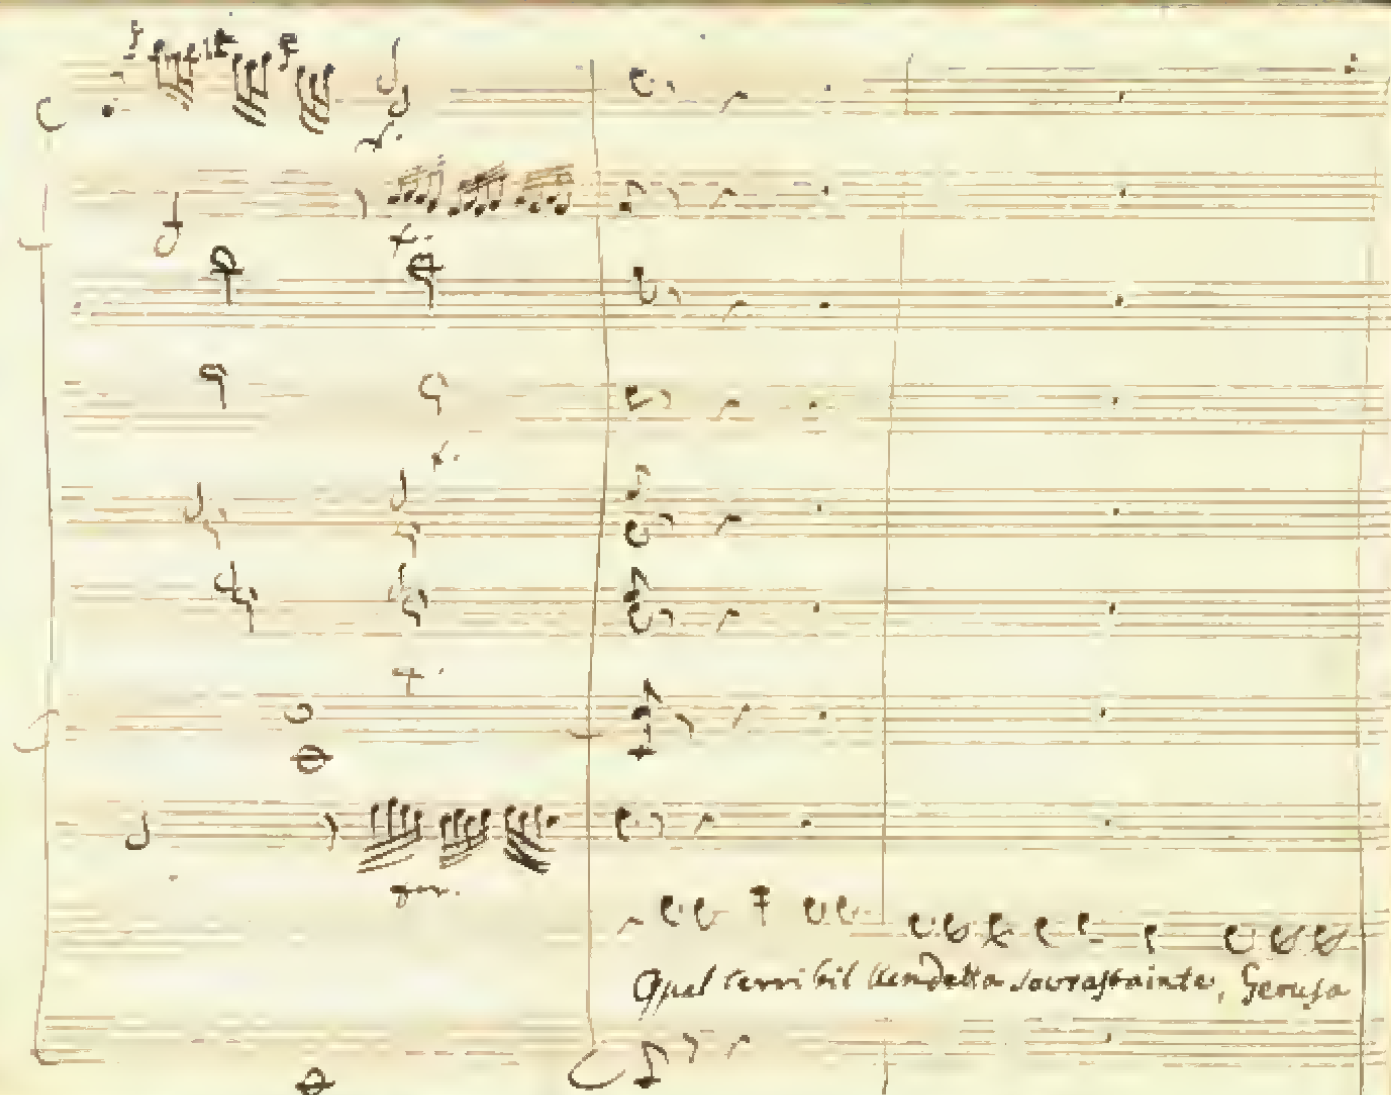 for.
Qual terribil vendetta sovrasta inte, Gerusa